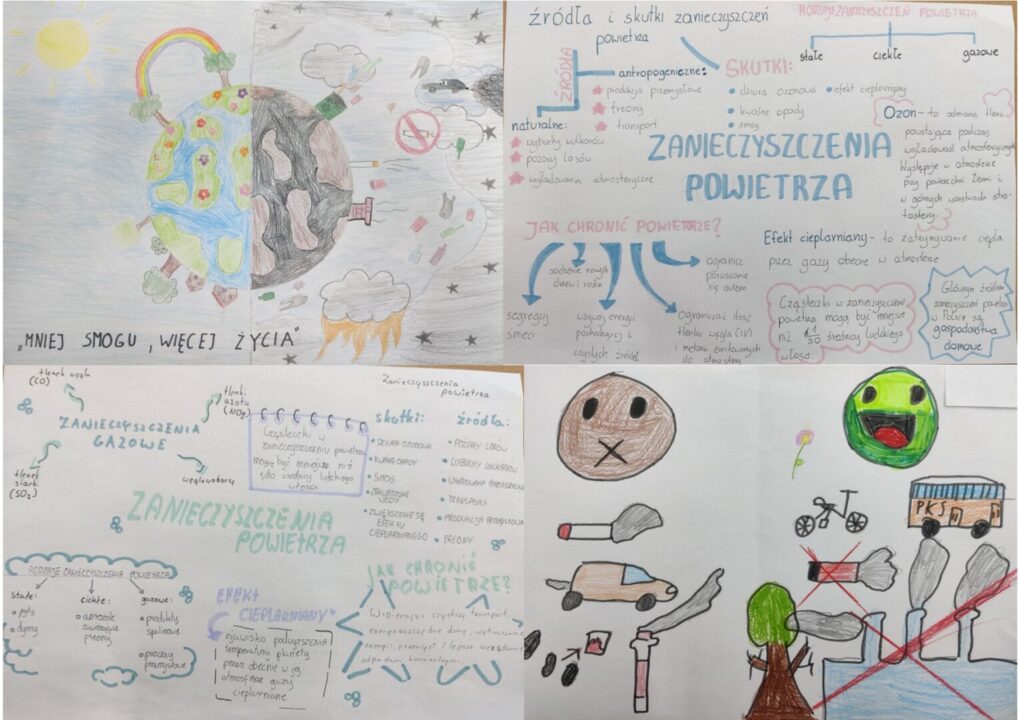 „MNIEJ SMOGU, WIĘCEJ ŻYCIA"
źródła i skutki zanieczyszczeń
powietrza
RODZAJE ZANIECZYSZCZEŃ POWIETRZA
stałe
ciekłe
gazowe
ŹRÓDŁA
antropogeniczne:
produkcja przemysłowa
freony
transport
naturalne:
wybuchy wulkanów
pożary lasów
wyładowania atmosferyczne
SKUTKI:
dziura ozonowa
efekt cieplarniany
kwaśne opady
smog
ZANIECZYSZCZENIA
POWIETRZA
Ozon - to odmiana tlenu
powstająca podczas
wyładowań atmosferycznych
Występuje w atmosferze
przy powierzchni Ziemi i
w górnych warstwach stra-
tosfery.
JAK CHRONIĆ POWIETRZE?
segreguj
śmieci
sadzenie nowych
drzew i roślin
używaj energii
pochodzącej z
czystych źródeł
ograniczać ilość
tlenku węgla (IV)
i metanu emitowanych
do atmosfery
ogranicz
poruszanie
się autem
Efekt cieplarniany - to zatrzymywanie ciepła
przez gazy obecne w atmosferze
Cząsteczki w zanieczyszczeniu
powietrza mogą być mniejsze
niż 1/30 średnicy ludzkiego
włosa
Głównym źródłem
zanieczyszczeń powietrza
w Polsce są
gospodarstwa
domowe
tlenek węgla
(CO)
tlenki
azotu
(NO2)
ZANIECZYSZCZENIA
GAZOWE
tlenek
siarki
(SO2)
węglowodory
Cząsteczki w
zanieczyszczeniu powietrza
mogą być mniejsze niż
1/30 średnicy ludzkiego
włosa
Zanieczyszczenia
powietrza
skutki:
DZIURA OZONOWA
KWAŚNE OPADY
SMOG
ZAKWASZONE
WODY
ZWIĘKSZENIE SIĘ
EFEKTU
CIEPLARNIANEGO
źródła:
POŻARY LASÓW
WYBUCHY WULKANÓW
WYŁADOWANIA ATMOSFERYCZNE
TRANSPORT
PRODUKCJA PRZEMYSŁOWA
FREONY
ZANIECZYSZCZENIA
POWIETRZA
RODZAJE ZANIECZYSZCZENIA POWIETRZA
stałe:
pyły
dymy
ciekłe:
aerozole
zawierające
freony
gazowe:
produkty
spalinowe
procesy
przemysłowe
EFEKT
CIEPLARNIANY
zjawisko podwyższenia
temperatury planety
przez obecne w jej
atmosferze gazy
cieplarniane
JAK CHRONIĆ
POWIETRZE?
czystszy transport,
energooszczędne domy, wytwarzanie
energii, przemysł i lepsze
odpadami komunalnymi
PKS